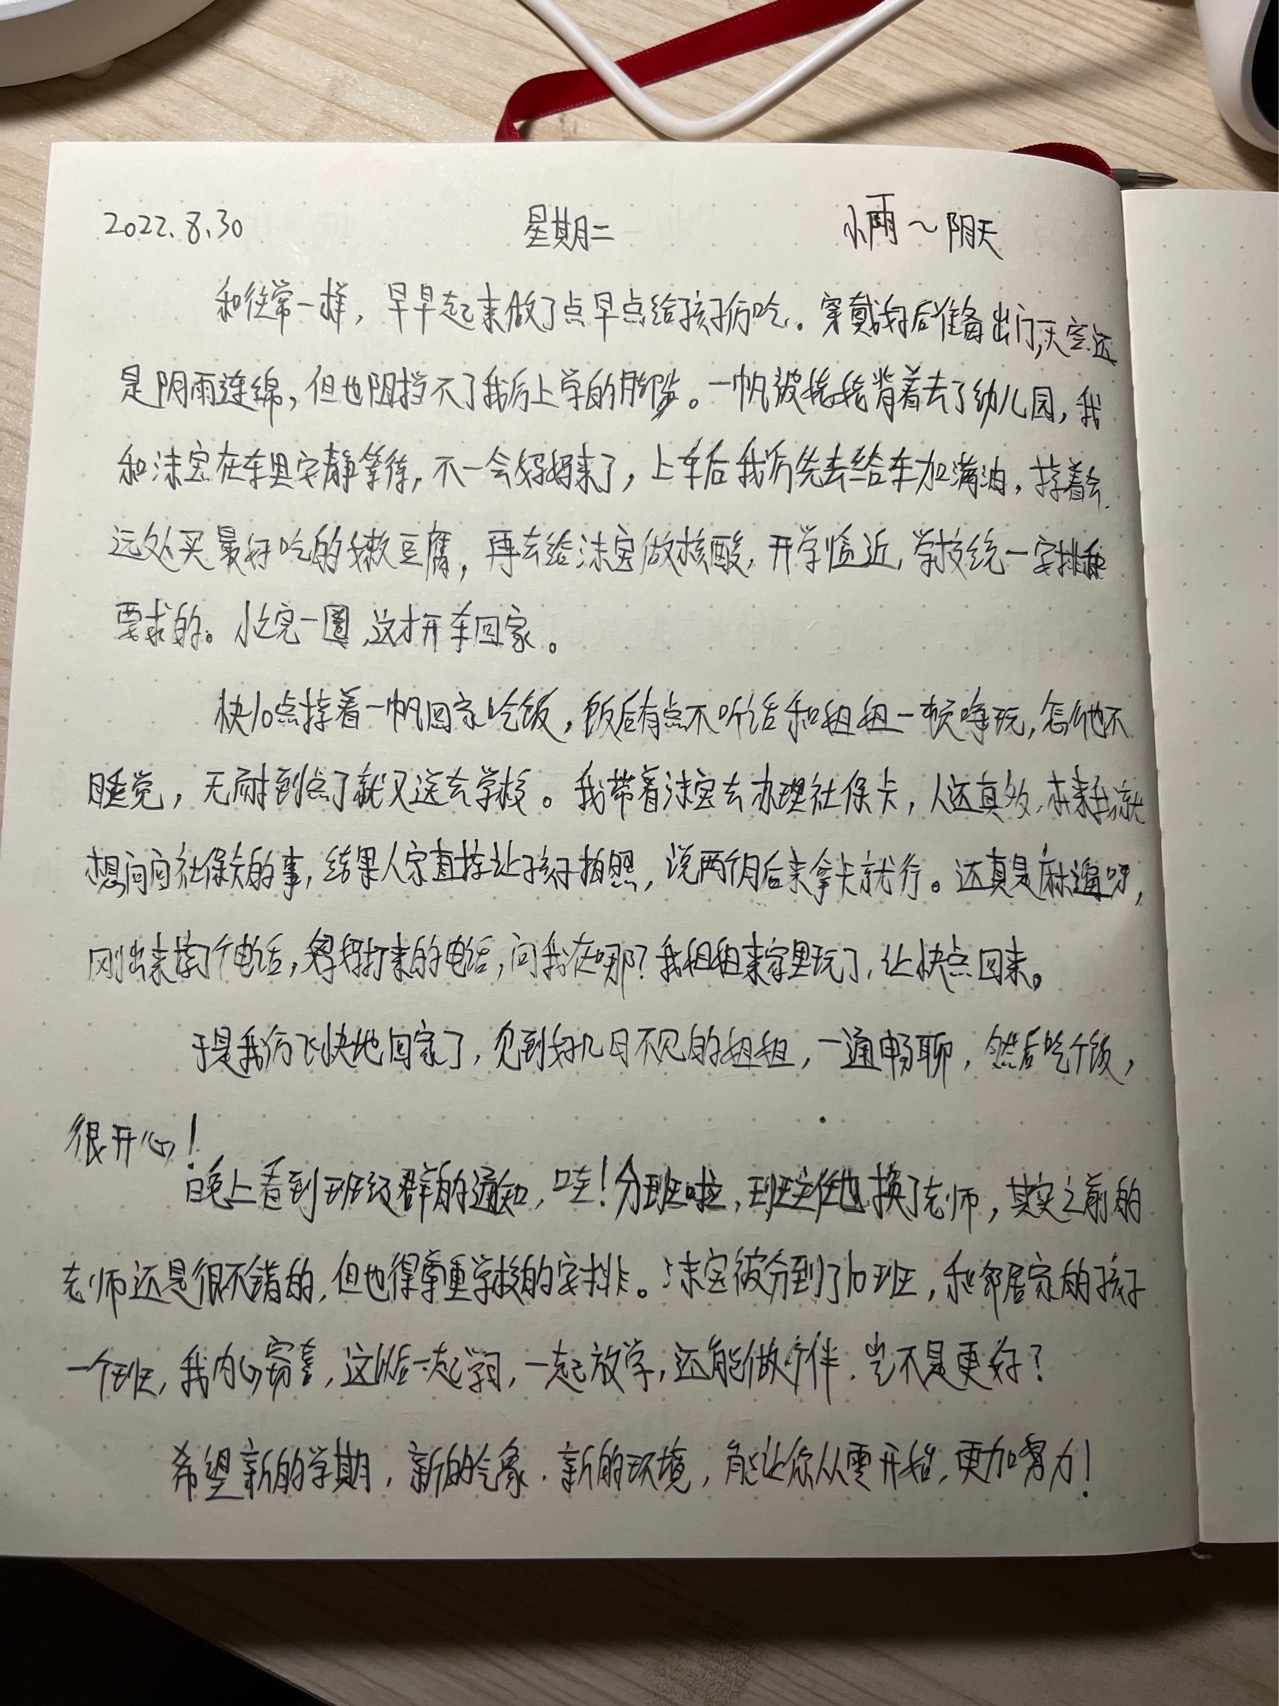 2022.8.30 星期二 小雨～阴天
和往常一样，早早起来做了点早点给孩子们吃。穿戴好后准备出门,天空还
是阴雨连绵，但也阻挡不了我们上学的脚步。一帆被姥姥背着去了幼儿园，我
和沫宝在车里安静等待，不一会妈妈来了，上车后我们先去给车加满油，接着去
远处买最好吃的嫩豆腐，再去给沫宝做核酸，开学临近，学校统一安排和
要求的。忙完一圈，这才开车回家。
快10点接着一帆回家吃饭，饭后有点不听话和姐姐一顿峥玩，怎么也不
睡觉，无耐到点了就又送去学校。我带着沫宝去办理社保卡，人还真多，本来我就
想问问社保卡的事，结果人家直接让孩子拍照，说两个月后来拿卡就行。还真是麻溜呀，
刚出来接了个电话，妈妈打来的电话，问我在哪？我姐姐来家里玩了，让快点回来。
于是我们飞快地回家了，见到好几日不见的姐姐，一通畅聊，然后吃个饭，
很开心！
晚上看到班级群的通知，哇！分班啦，班主任也换了老师，其实之前的
老师还是很不错的，但也得尊重学校的安排。沫宝被分到了10班，和邻居家的孩子
一个班，我内心窃喜，这以后一起学习，一起放学，还能做个伴，岂不是更好？
希望新的学期，新的气象，新的环境，能让你从零开始，更加努力！